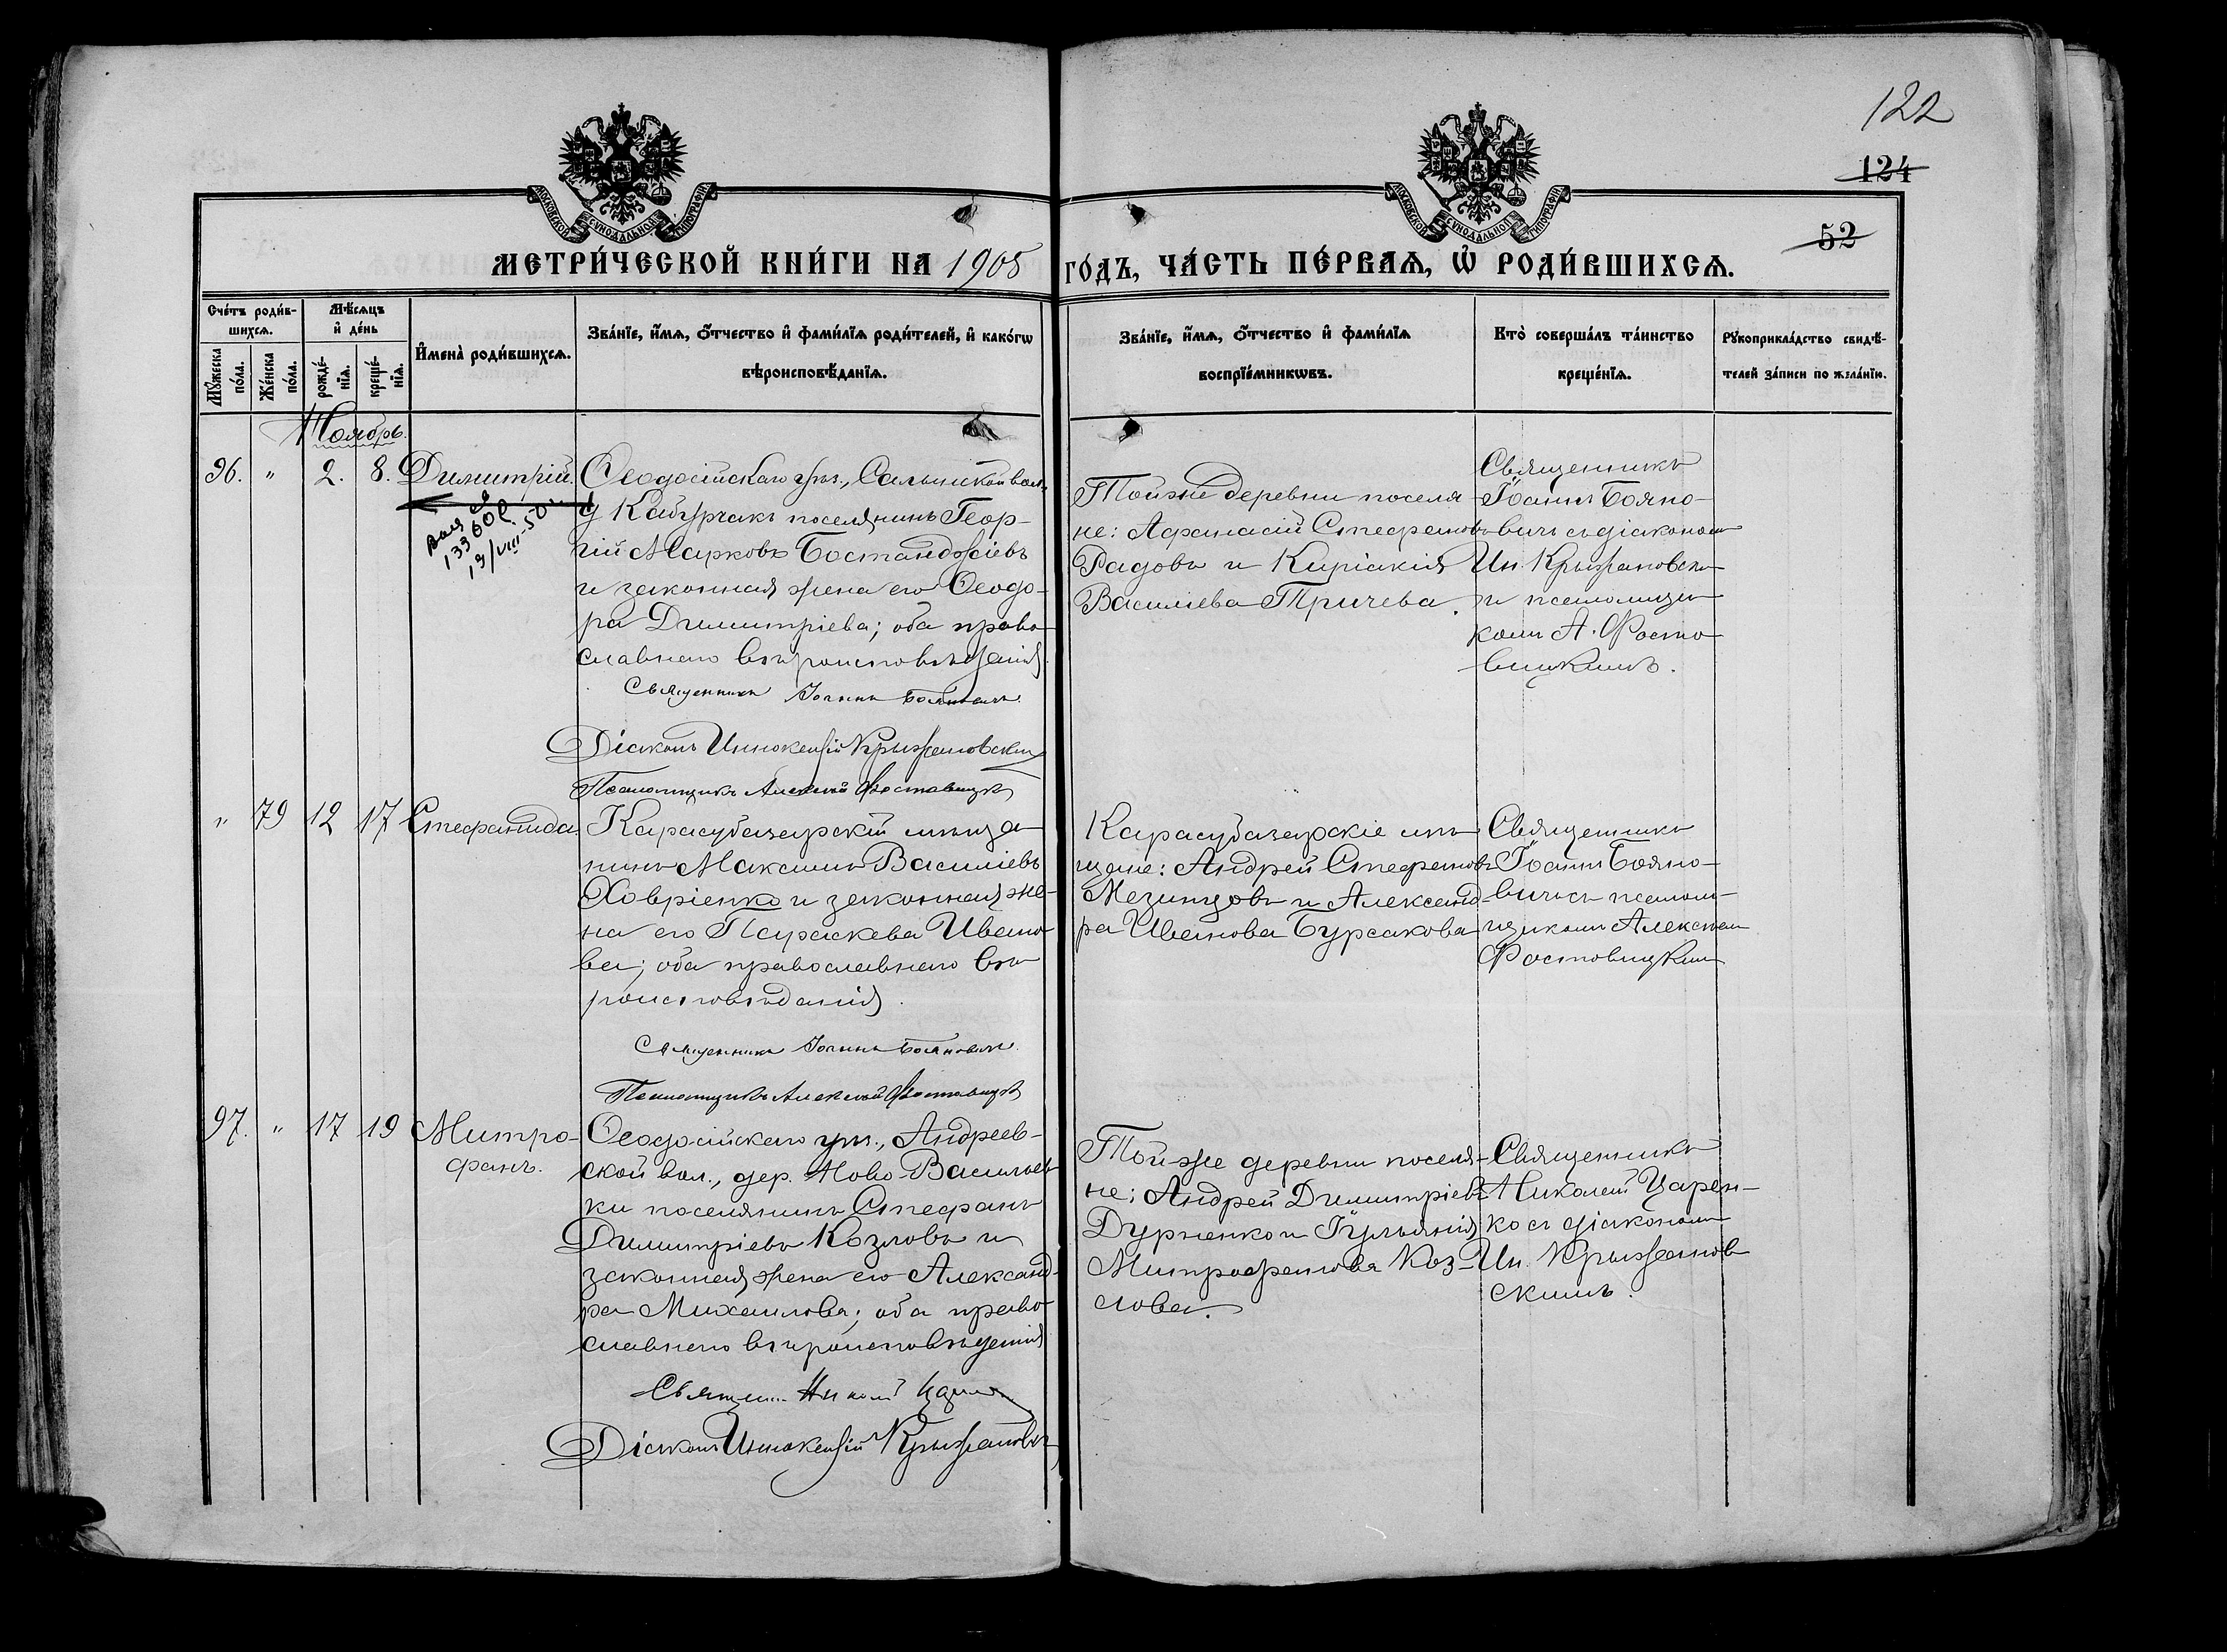 122
124
52
МОСКОВСКОЙ СУНОДАЛЬНОЙ ТИПОГРАФІИ
МОСКОВСКОЙ СУНОДАЛЬНОЙ ТИПОГРАФІИ
МЕТРИ́ЧЕСКОЙ КНИ́ГИ НА 1905 ГО́ДЪ, ЧА́СТЬ ПЕ́РВАѦ, Ѡ҆ РОДИ́ВШИХСѦ.
Сче́тъ роди́в-
шихсѧ.
Мꙋ́жеска
по́ла.
Же́нска
по́ла.
Мѣ́сѧцъ
и҆ де́нь
рожде́-
нїѧ.
креще́-
нїѧ.
И҆мена̀ роди́вшихсѧ.
Зва́нїе, и҆́мѧ, ѻ҆́тчество и҆ фами́лїѧ роди́телей, и҆ како́гѡ
вѣроисповѣ́данїѧ.
Зва́нїе, и҆́мѧ, ѻ҆́тчество и҆ фами́лїѧ
воспрїе́мникѡвъ.
Кто̀ соверша́лъ та́инство
креще́нїѧ.
Рꙋкоприкла́дство свидѣ́-
телей за́писи по жела́нїю.
Ноябрь.
96. " 2. 8. Димитрій.
13360
13/VIII-50
Ѳеодосійскаго уѣз., Салынской вол.,
д Кабурчакъ поселянинъ Геор-
гій Марковъ Бостанджіевъ
и законная жена его Ѳеодо-
ра Димитріева; оба право-
славнаго вѣроисповѣданія.
Священникъ Іоаннъ Бояновичъ.
Діаконъ Иннокентій Крыжановскій
Псаломщикъ Алексій Фостовицкій
Той же деревни поселя-
не: Аѳанасій Стефановъ
Радовъ и Киріакія
Василіева Тричева.
Священникъ
Іоаннъ Бояно-
вичъ съ діакономъ
Ин. Крыжановски
и псаломщи
комъ А. Фосто-
вицкимъ.
" 79 12 17 Стефанида.
Карасубазарскій мѣща-
нинъ Максимъ Василіевъ
Ховріенко и законная же-
на его Параскева Ивано-
ва; оба православнаго вѣ-
роисповѣданія.
Священникъ Іоаннъ Бояновичъ.
Псаломщикъ Алексій Фостовицкій
Карасубазарскіе мѣ-
щане: Андрей Стефановъ
Мезинцовъ и Александ-
ра Иванова Бурсакова
Священникъ
Іоаннъ Бояно-
вичъ съ псалом-
щикомъ Алексѣем
Фостовицким
97. " 17 19 Митро-
фанъ.
Ѳеодосійскаго уѣз., Андреев-
ской вол., дер. Ново-Васильев-
ки поселянинъ Стефанъ
Димитріевъ Козловъ и
законная жена его Александ-
ра Михаилова; оба право-
славнаго вѣроисповѣданія
Священ. Никол. Царен
Діаконъ Иннокентій Крыжановск
Той-же деревни поселя-
не: Андрей Димитріевъ
Дурненко и Іуліанія
Митрофанова Коз-
лова.
Священникъ
Николай Царен-
ко съ діакономъ
Ин. Крыжанов-
скимъ.